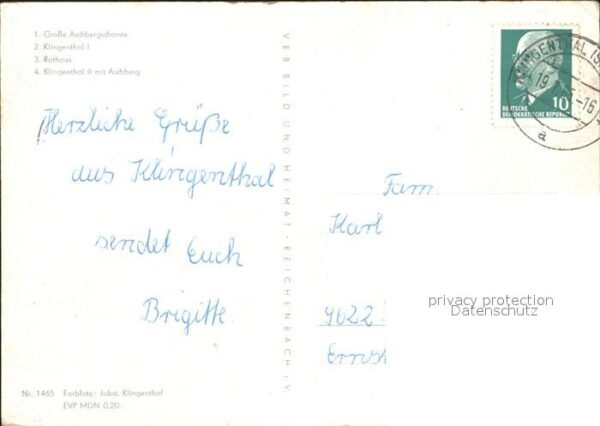 1. Große Aschbergschanze
2. Klingenthal I
3. Rathaus
4. Klingenthal II mit Aschberg
Herzliche Grüße
aus Klingenthal
sendet Euch
Brigitte.
Nr. 1465 Farbfoto: Jobst, Klingenthal
EVP MDN 0,20
VEB BILD UND HEIMAT · REICHENBACH I. V.
10
DEUTSCHE
DEMOKRATISCHE REPUBLIK
KLINGENTHAL
a
Fam.
Karl
9622
privacy protection
Datenschutz